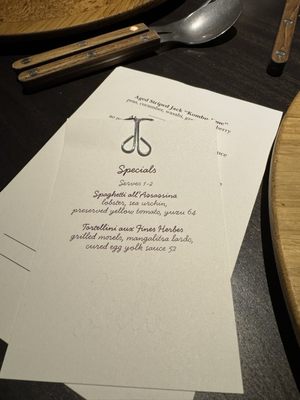 Aged Striped Jack "Kombu
peas, cucumber, wasabi,
Specials
Serves 1-2
Spaghetti all'Assassina
lobster, sea urchin,
preserved yellow tomato, yuzu 64
Tortellini aux Fines Herbes
grilled morels, mangalitsa lardo,
cured egg yolk sauce 52